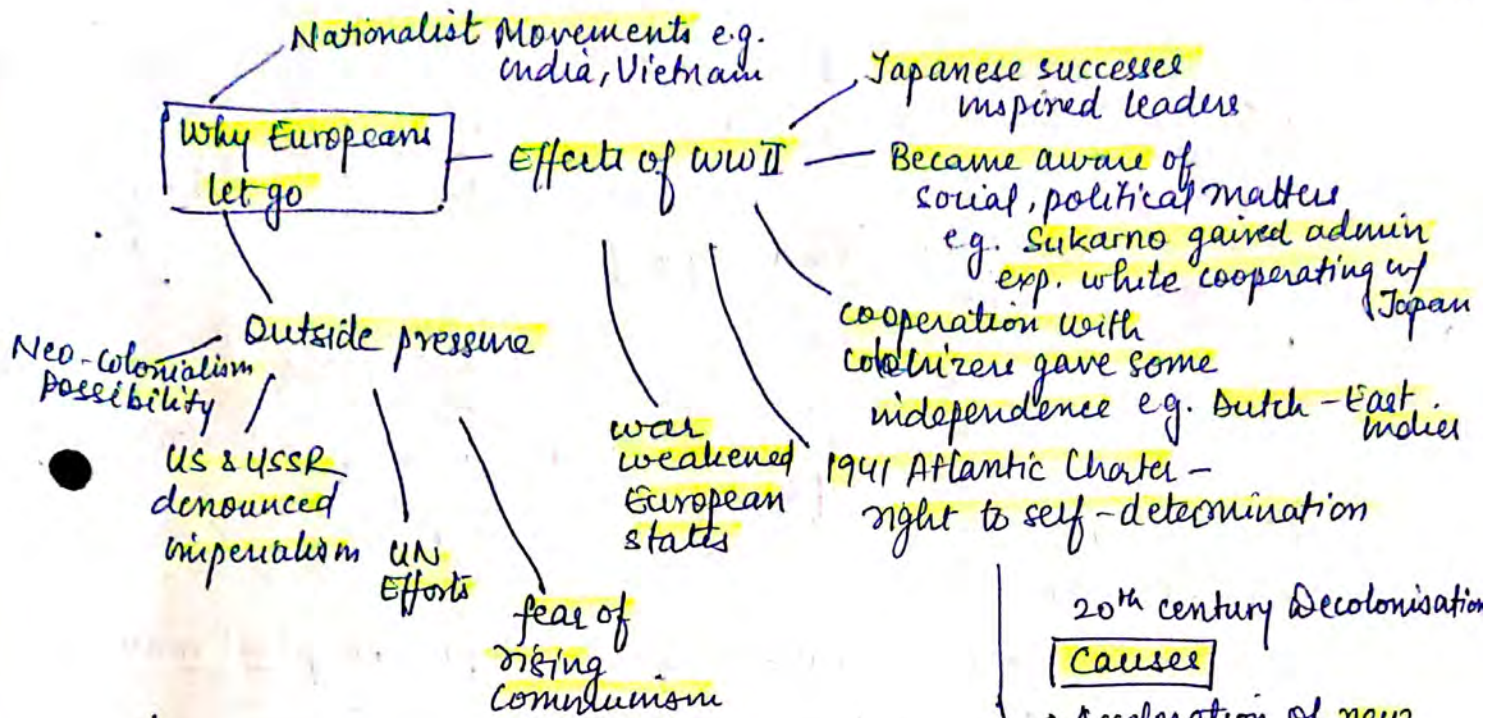 Nationalist Movements e.g.
India, Vietnam
Why Europeans
let go
Effects of WWII
Japanese successes
inspired leaders
Became aware of
social, political matters
e.g. Sukarno gained admin
exp. while cooperating w/
Japan
cooperation with
colonizers gave some
independence e.g. Dutch-East
Indies
1941 Atlantic Charter -
right to self-determination
war
weakened
European
states
Outside pressure
Neo-colonialism
possibility
US & USSR
denounced
imperialism
UN
Efforts
fear of
rising
Communism
20th century Decolonisation
Causes
of new